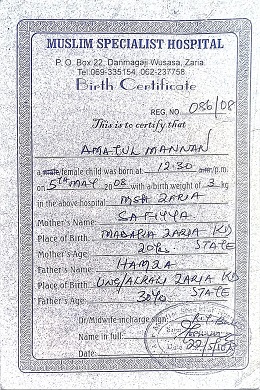 MUSLIM SPECIALIST HOSPITAL
P. O. Box 22, Danmagaji Wusasa, Zaria.
Tel: 069-335154, 062-237758
Birth Certificate
REG. NO. 086/08
This is to certify that
AMATUL MANNAN
a male/female child was born at 12:30 a.m/p.m.
on 5TH MAY 2008 with a birth weight of 3 kg
in the above hospital MSH ZARIA
Mother's Name: SAFIYYA
Place of Birth: ZARIA KD STATE
Mother's Age: 20yrs.
Father's Name: HAMZA
Place of Birth: ZARIA KD STATE
Father's Age: 30yrs
Dr/Midwife incharge sign:
Name in full:
Date: